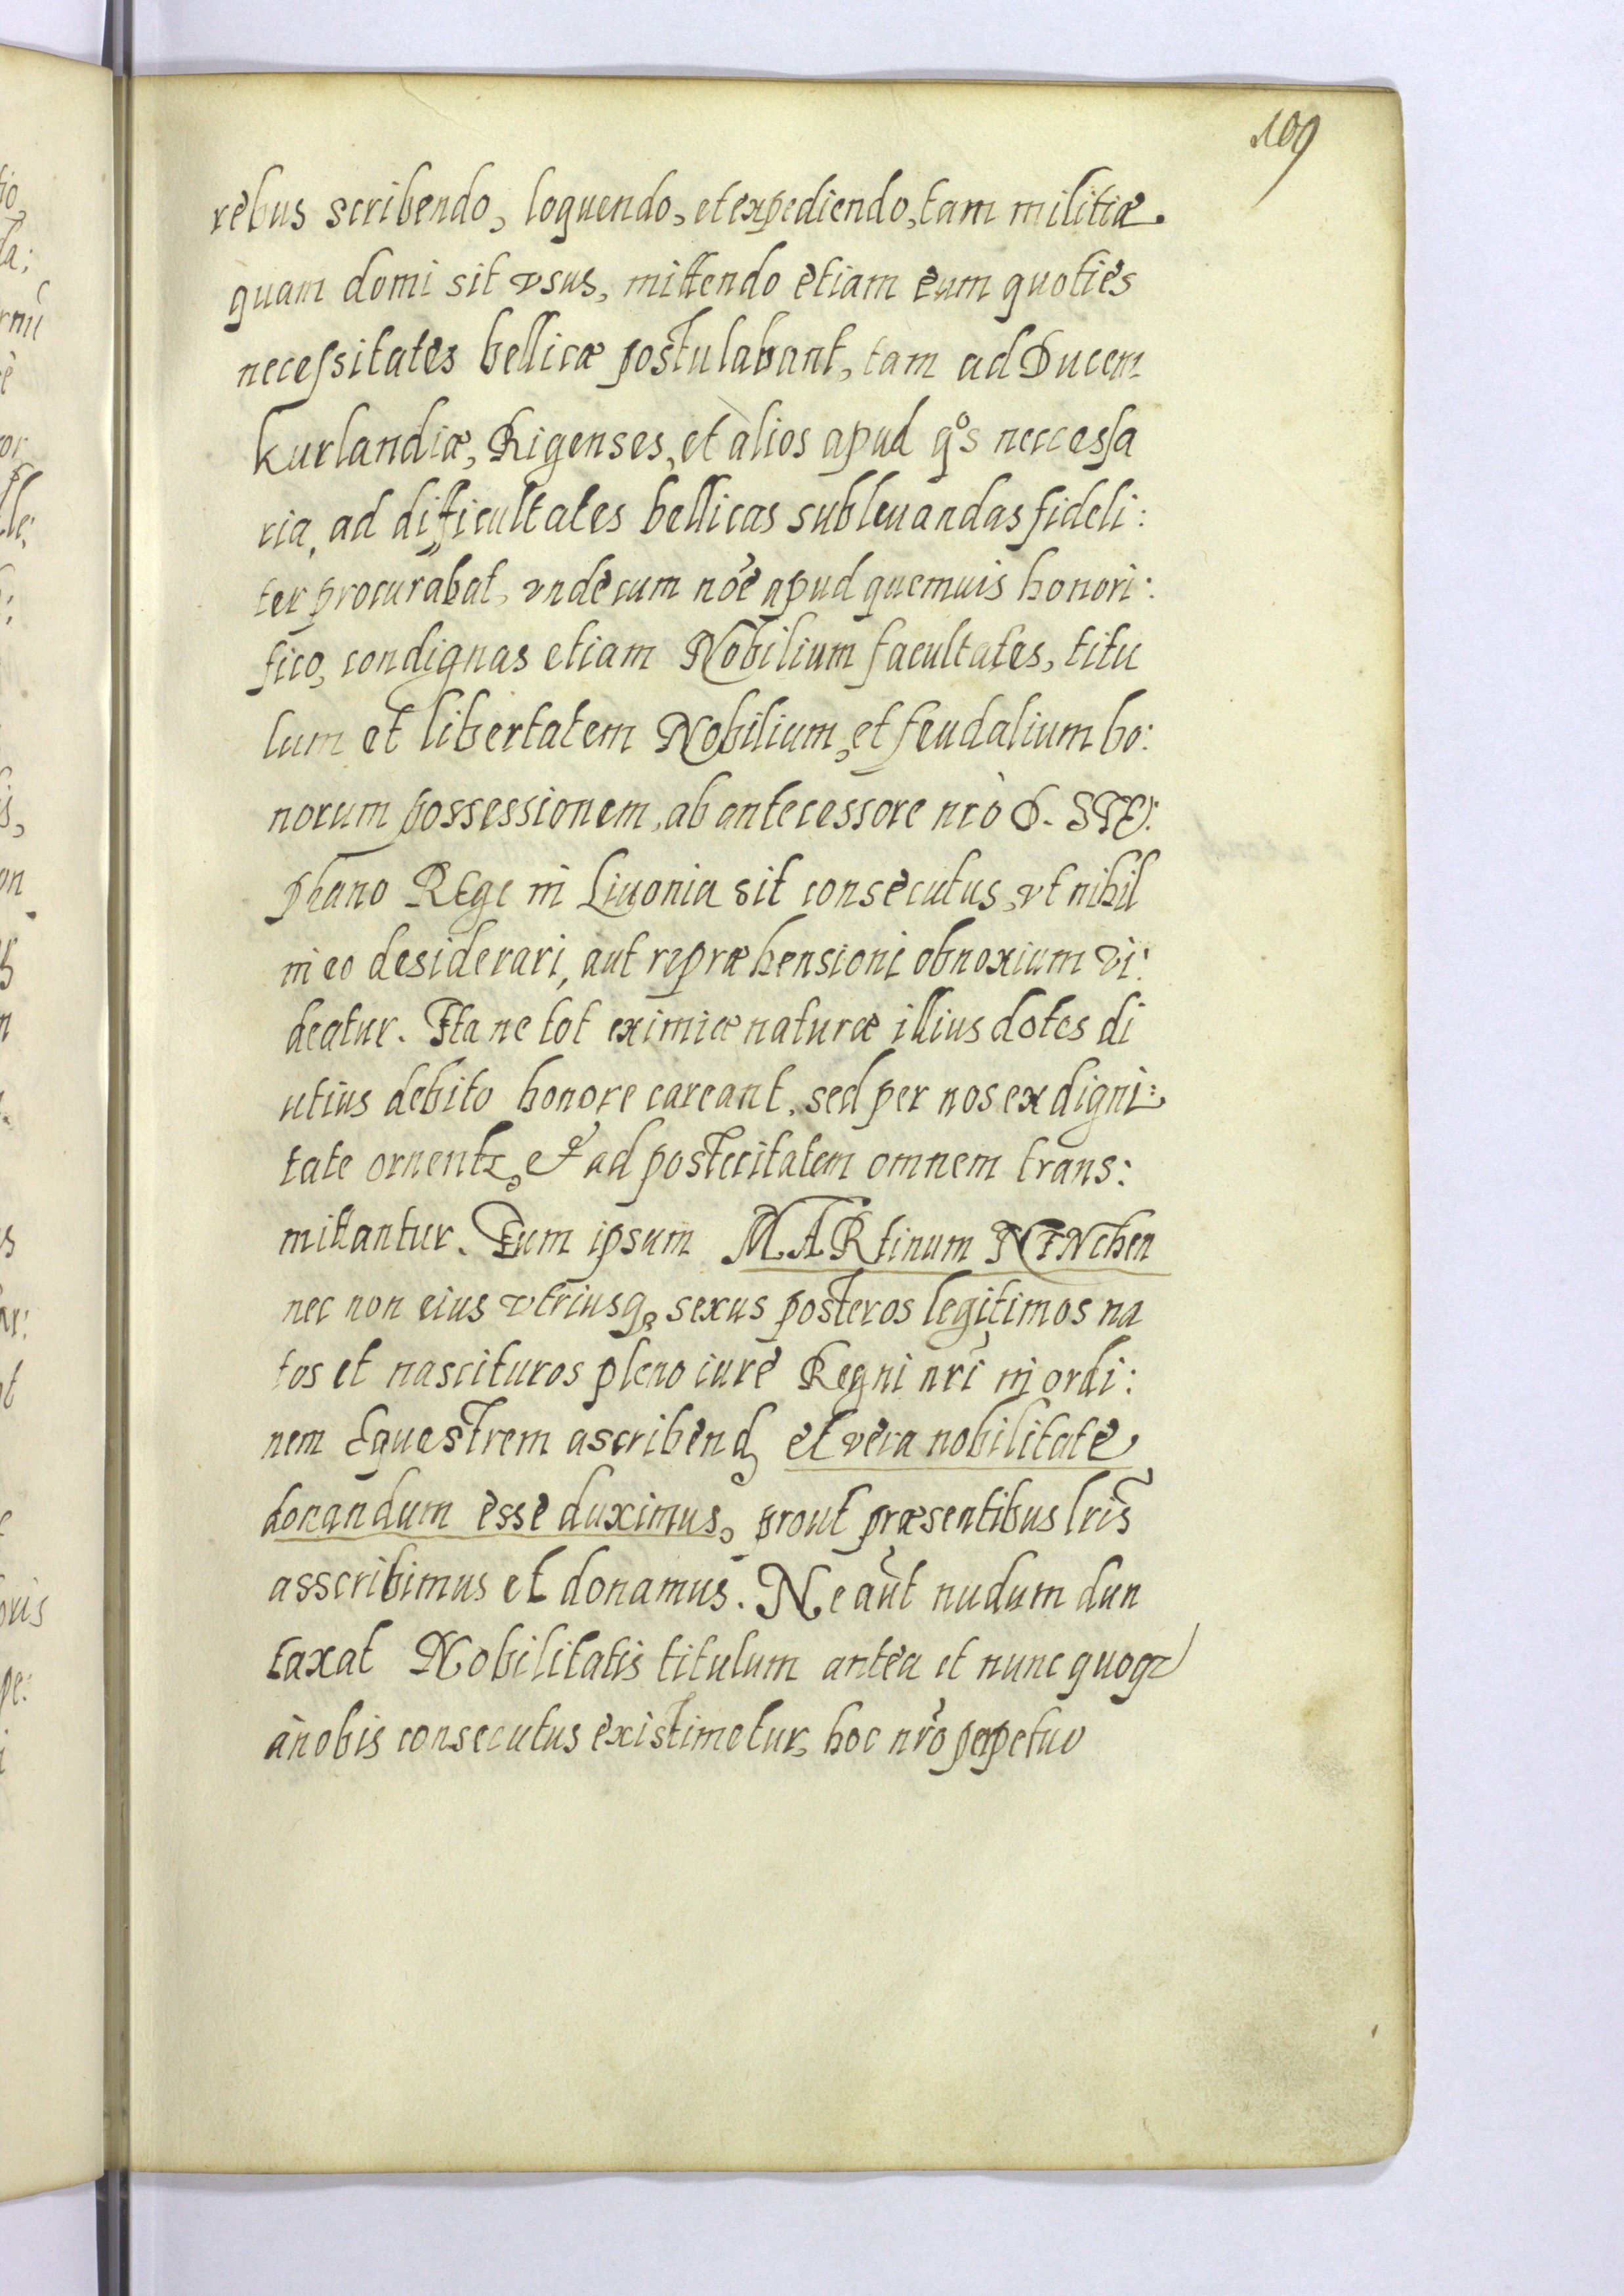 109
rebus scribendo, loquendo, et expediendo, tam militiæ
quam domi sit vsus, mittendo etiam eum quoties
necessitates bellicæ postulabant, tam ad Ducem
Kurlandiæ, Rigenses, et alios apud qos neccessa
ria, ad difficultates bellicas subleuandas fideli:
ter procurabat, vnde cum nōe apud quemuis honori:
fico, condignas etiam Nobilium facultates, titu
lum et libertatem Nobilium, et feudalium bo:
norum possessionem, ab antecessore nrò D. STE:
phano Rege in Liuonia sit consecutus, vt nihil
in eo desiderari, aut repræhensioni obnoxium vi:
deatur. Ita ne tot eximiæ naturæ illius dotes di
utius debito honore careant, sed per nos ex digni:
tate ornentr, et ad posteritatem omnem trans:
mittantur. Eum ipsum MARtinum NINchen
nec non eius vtriusq, sexus posteros legitimos na
tos et nascituros pleno iure Regni nrĩ in ordi:
nem Equestrem ascribend, et vera nobilitate
donandum esse duximus, prout præsentibus lrĩs
asscribimus et donamus. Ne aũt nudum dun
taxat Nobilitatis titulum antea et nunc quoqz
à nobis consecutus existimetur, hoc nrõ perpetuo